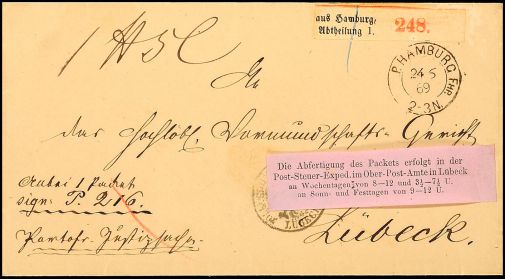 aus Hamburg,
Abtheilung 1. 248.
P. HAMBURG FHR.
24 5
69
2-3N.
An
das Hochlöbl. Vormundschafts-Gericht
Die Abfertigung des Packets erfolgt in der
Post-Steuer-Exped. im Ober-Post-Amte in Lübeck
an Wochentagen von 8—12 und 3½—7½ U.
an Sonn- und Festtagen von 9—12 U.
anbei 1 Packet
sign: P. 216.
LÜBECK
Lübeck.
Portofr. Justizsache.